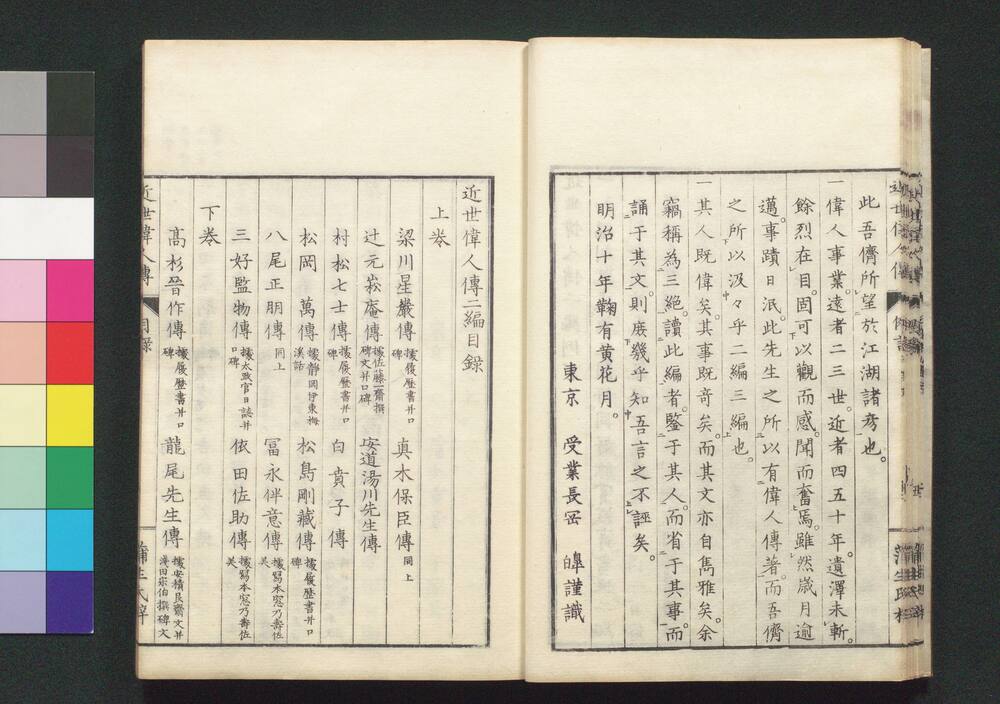 此吾儕所望於江湖諸彦也。
一偉人事業。遠者二三世。近者四五十年。遺澤未斬。
餘烈在目。固可以觀而感。聞而奮焉。雖然歳月逾
邁。事蹟日泯。此先生之所以有偉人傳著。而吾儕
之所以汲々乎二編三編也。
一其人既偉矣。其事既奇矣。而其文亦自雋雅矣。余
竊稱為三絶。讀此編者。鑒于其人。而省于其事。而
誦于其文。則庶幾乎知吾言之不誣矣。
明治十年鞠有黄花月。
東京 受業長 謹識
近世偉人傳二編目録
上巻
梁川星巖傳 據履歴書并口碑 真木保臣傳 同上
辻元崧庵傳 據佐藤一齋撰碑文并口碑 安道湯川先生傳
村松七士傳 據履歴書并口碑 白賁子傳
松岡萬傳 據靜岡伊東梅溪話 松島剛藏傳 據履歴書并口碑
八尾正朋傳 同上 冨永伴意傳 據寫本窓乃壽佐美
三好監物傳 據太政官日誌并口碑 依田佐助傳 據寫本窓乃壽佐美
下巻
高杉晉作傳 據履歴書并口碑 龍尾先生傳 據安積艮齋文并淺田宗伯撰碑文
近世偉人傳 目録 蒲生氏梓